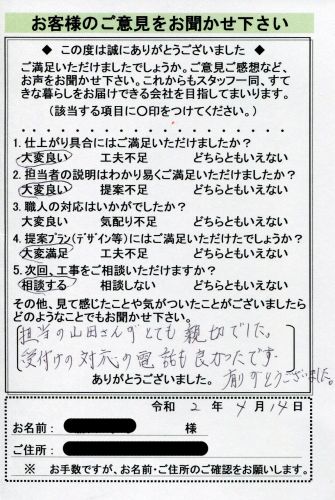 お客様のご意見をお聞かせ下さい
◆ この度は誠にありがとうございました ◆
ご満足いただけましたでしょうか。ご意見ご感想など、
お声をお聞かせ下さい。これからもスタッフ一同、すて
きな暮らしをお届けできる会社を目指してまいります。
(該当する項目に〇印をつけてください。)
1. 仕上がり具合にはご満足いただけましたか?
大変良い 工夫不足 どちらともいえない
2. 担当者の説明はわかり易くご満足いただけましたか?
大変良い 提案不足 どちらともいえない
3. 職人の対応はいかがでしたか?
大変良い 気配り不足 どちらともいえない
4. 提案プラン(デザイン等)にはご満足いただけたでしょうか?
大変満足 工夫不足 どちらともいえない
5. 次回、工事をご相談いただけますか?
相談する 相談しない どちらともいえない
その他、見て感じたことや気がついたことがございましたら
どのようなことでもお聞かせ下さい。
担当の山田さんがとても親切でした。
受付けの対応の電話も良かったです。
ありがとうございました。 有りがとうございました。
令和 2 年 4 月 14 日
お名前: 様
ご住所:
※ お手数ですが、お名前・ご住所のご確認をお願いします。